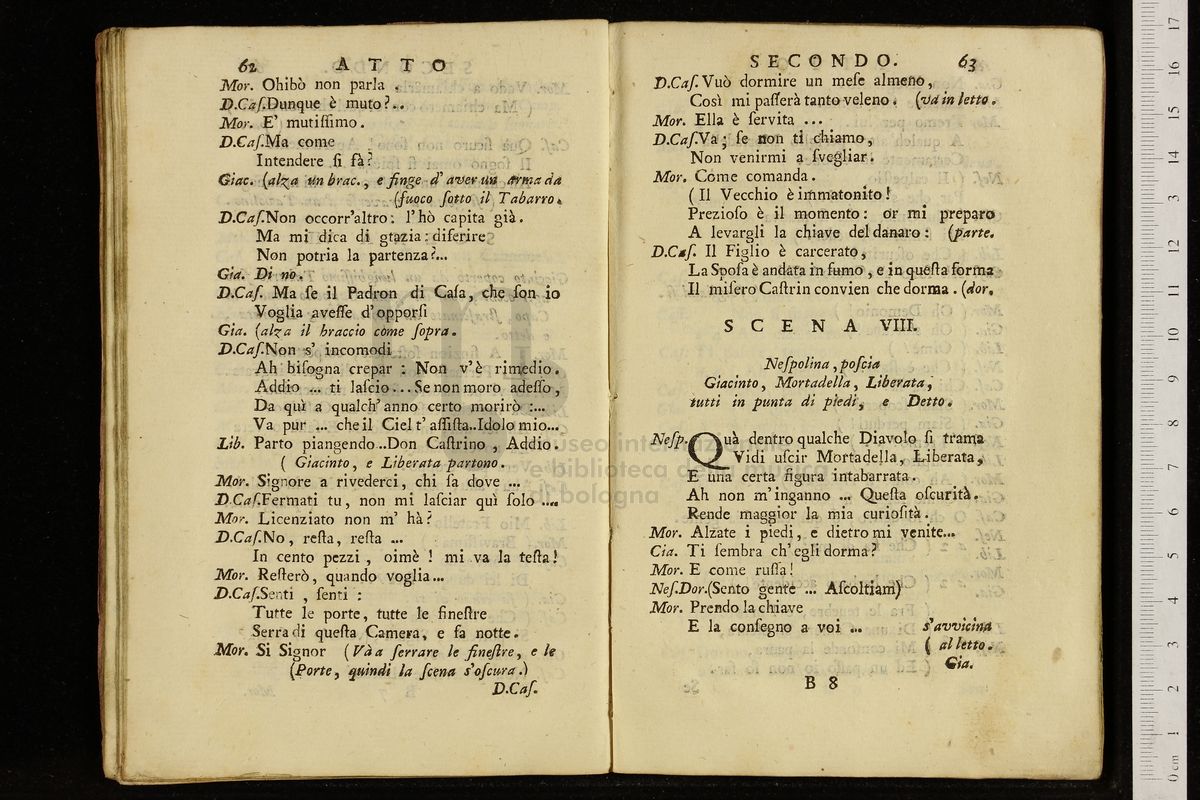 62 ATTO
Mor. Ohibò non parla .
D.Caſ.Dunque è muto?..
Mor. E' mutiſſimo.
D.Caſ.Ma come
Intendere ſi fà?
Giac. (alza un brac., e finge d' aver un arma da
(fuoco ſotto il Tabarro.
D.Caſ.Non occorr'altro: l'hò capita già.
Ma mi dica di gtazia: diferire
Non potria la partenza?...
Gia. Di no.
D.Caſ. Ma ſe il Padron di Caſa, che ſon io
Voglia aveſſe d'opporſi
Gia. (alza il braccio come ſopra.
D.Caſ.Non s' incomodi
Ah biſogna crepar : Non v'è rimedio.
Addio ... ti laſcio...Se non moro adeſſo,
Da quì a qualch'anno certo morirò :...
Va pur ... che il Ciel t' aſſiſta..Idolo mio...
Lib. Parto piangendo..Don Caſtrino , Addio.
( Giacinto, e Liberata partono.
Mor. Signore a rivederci, chi ſa dove ...
D.Caſ.Fermati tu, non mi laſciar quì ſolo ....
Mor. Licenziato non m' hà?
D.Caſ.No, reſta, reſta ...
In cento pezzi , oimè ! mi va la teſta!
Mor. Reſterò, quando voglia...
D.Caſ.Senti , ſenti :
Tutte le porte, tutte le fineſtre
Serra di queſta Camera, e fa notte.
Mor. Si Signor (Và a ſerrare le fineſtre, e le
(Porte, quindi la ſcena s'oſcura.)
D.Caſ.
SECONDO. 63
D.Caſ.Vuò dormire un meſe almeno,
Così mi paſſerà tanto veleno. (va in letto.
Mor. Ella è ſervita ...
D.Caſ.Va; ſe non ti chiamo,
Non venirmi a ſvegliar.
Mor. Come comanda.
( Il Vecchio è immatonito!
Prezioſo è il momento: or mi preparo
A levargli la chiave del danaro: (parte.
D.Caſ. Il Figlio è carcerato,
La Spoſa è andata in fumo, e in queſta forma
Il miſero Caſtrin convien che dorma. (dor.
SCENA VIII.
Neſpolina, poſcia
Giacinto, Mortadella, Liberata,
tutti in punta di piedi, e Detto.
Neſp. Quà dentro qualche Diavolo ſi trama
Vidi uſcir Mortadella, Liberata,
E una certa figura intabarrata.
Ah non m'inganno ... Queſta oſcurità.
Rende maggior la mia curioſità.
Mor. Alzate i piedi, e dietro mi venite...
Cia. Ti ſembra ch'egli dorma?
Mor. E come ruſſa!
Neſ.Dor.(Sento gente ... Aſcoltiam)
Mor. Prendo la chiave
E la conſegno a voi ... s'avvicina
( al letto.
Gia.
B 8
museo internazionale
e biblioteca della musica
di bologna
0 cm 1 2 3 4 5 6 7 8 9 10 11 12 13 14 15 16 17